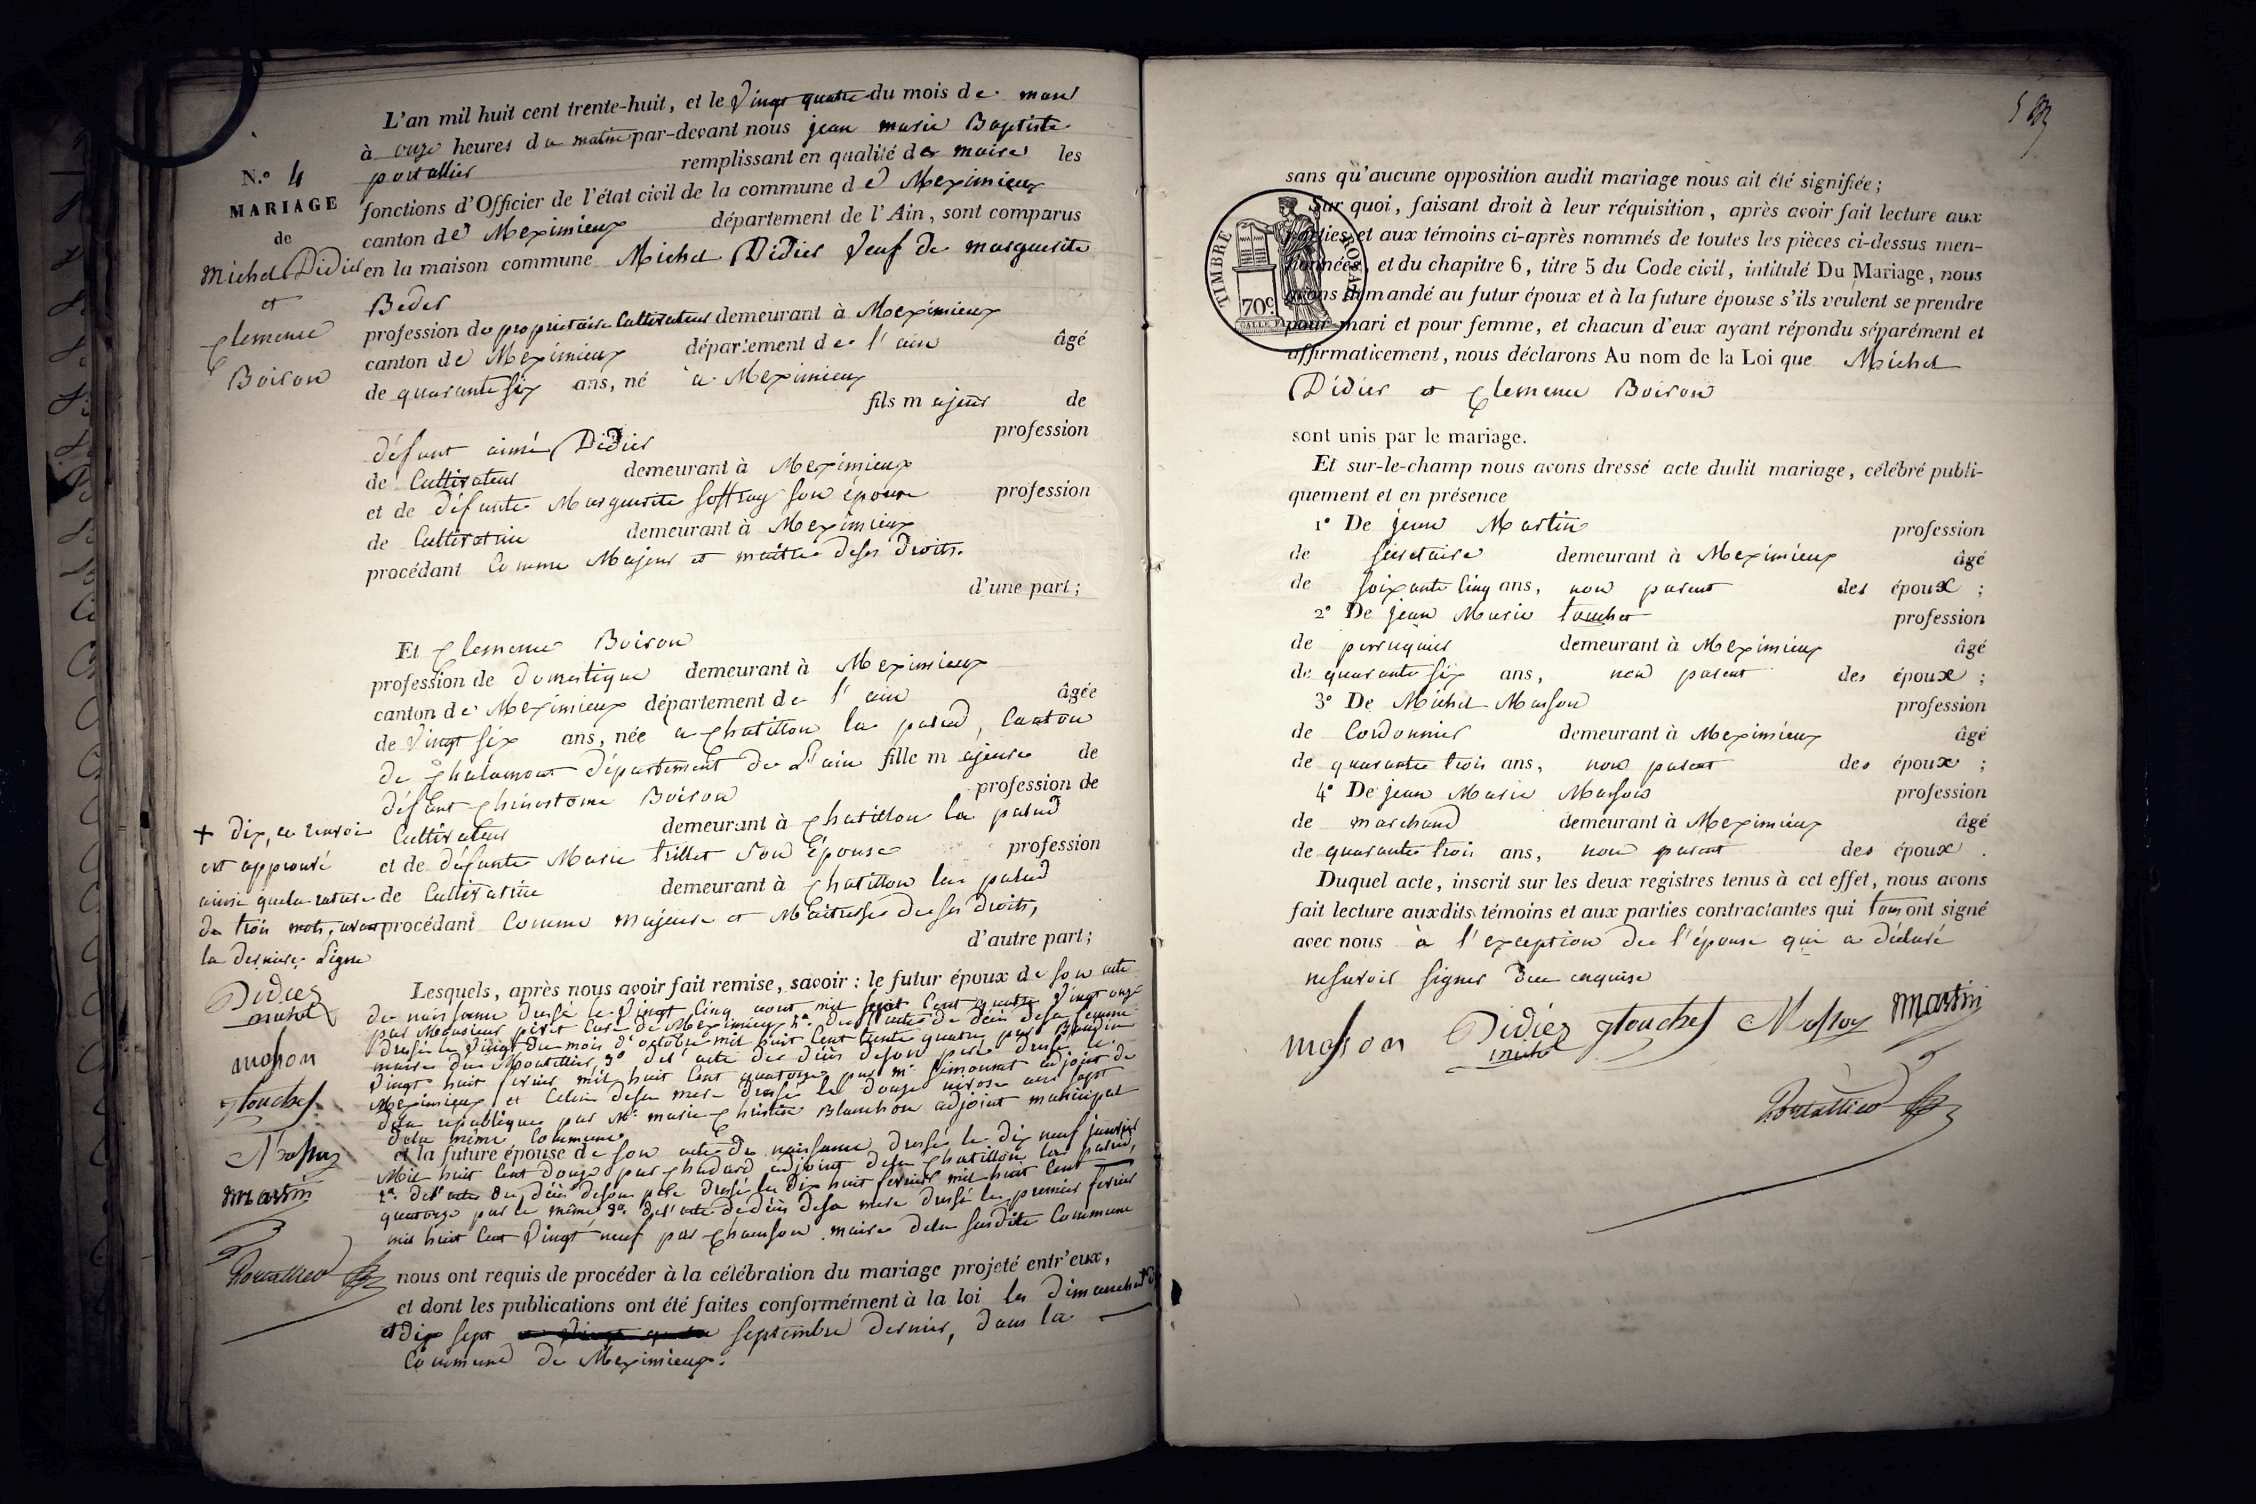 L'an mil huit cent trente-huit, et le Vingt quatre du mois de mars
à onze heures du matin par-devant nous jean marie Baptiste
portallier remplissant en qualité de maire les
fonctions d'Officier de l'état civil de la commune de Meximieux
canton de Meximieux département de l'Ain, sont comparus
en la maison commune Michel Didier Veuf de marguerite
Beder
profession de propriétaire Cultivateur demeurant à Meximieux
canton de Meximieux département de l'ain âgé
de quarante six ans, né à Meximieux
fils majeur de
défunt aimé Didier profession
de Cultivateur demeurant à Meximieux
et de défunte Marguerite Joffray son épouse profession
de Cultivatrice demeurant à Meximieux
procédant Comme Majeur et maître deses Droits.
d'une part;
N.º 4
MARIAGE
de
Michel Didier
et
Clemence
Boiron
Et Clemence Boiron
profession de domestique demeurant à Meximieux
canton de Meximieux département de l'ain âgée
de Vingt six ans, née a Chatillon la palud, Canton
de Chalamont département de L'ain fille majeure de
défunt Chrisostome Boiron profession de
Cultivateur demeurant à Chatillon la palud
et de défunte Marie trillet son épouse profession
de Cultivatrice demeurant à Chatillon la palud
procédant Comme majeure et Maîtresse de ses droits,
d'autre part;
+ dix, ce renvoi
est approuvé
ainsi quela rature
de trois mots, avant
la derniere Ligne
Didier
michel
masson
J touchet
Masson
martin
Portallier
Lesquels, après nous avoir fait remise, savoir: le futur époux de son acte
de naissance dressé le Vingt Cinq aout mil sept Cent quatre Vingt onze
par Monsieur Curé de Meximieux 2º de l'acte de décès desa femme
dressé le Vingt du mois d'octobre mil huit Cent trente quatre par
maire du Montellier, 3º del'acte de décès deson père dressé le
Vingt huit fevrier mil huit Cent quatorze par Mr Simonnet adjoint de
Meximieux et Celui desa mere dressé le douze nivose an sept
dela république par Mr marie Christin Blanchon adjoint municipal
dela même Commune
et la future épouse de son acte de naissance dressé le dix neuf janvier
Mil huit Cent douze par Chudard adjoint de Chatillon la palud,
2º del'acte de décès deson père dressé le dix huit fevrier mil huit Cent
quatorze par le même 3º del'acte dedécès desa mere dressé le premier fevrier
mil huit Cent Vingt neuf par Chanson maire dela susdite Commune
nous ont requis de procéder à la célébration du mariage projeté entr'eux,
et dont les publications ont été faites conformément à la loi les dimanches
et dix sept septembre dernier, dans la
Commune de Meximieux.
sans qu'aucune opposition audit mariage nous ait été signifiée;
Sur quoi, faisant droit à leur réquisition, après avoir fait lecture aux
parties et aux témoins ci-après nommés de toutes les pièces ci-dessus men-
tionnées, et du chapitre 6, titre 5 du Code civil, intitulé Du Mariage, nous
avons demandé au futur époux et à la future épouse s'ils veulent se prendre
pour mari et pour femme, et chacun d'eux ayant répondu séparément et
affirmativement, nous déclarons Au nom de la Loi que Michel
Didier et Clemence Boiron
TIMBRE ROYAL
70c.
sont unis par le mariage.
Et sur-le-champ nous avons dressé acte dudit mariage, célébré publi-
quement et en présence
1º De jean Martin profession
de secretaire demeurant à Meximieux âgé
de soixante Cinq ans, non parent des époux;
2º De jean Marie touchet profession
de perruquier demeurant à Meximieux âgé
de quarante six ans, non parent des époux;
3º De Michel Masson profession
de Cordonnier demeurant à Meximieux âgé
de quarante trois ans, non parent des époux;
4º De jean Marie Masson profession
de marchand demeurant à Meximieux âgé
de quarante trois ans, non parent des époux.
Duquel acte, inscrit sur les deux registres tenus à cet effet, nous avons
fait lecture auxdits témoins et aux parties contractantes qui tous ont signé
avec nous à l'exception de l'épouse qui a déclaré
nesavoir signer de ce enquise
masson Didier michel J touchet Masson martin
Portallier